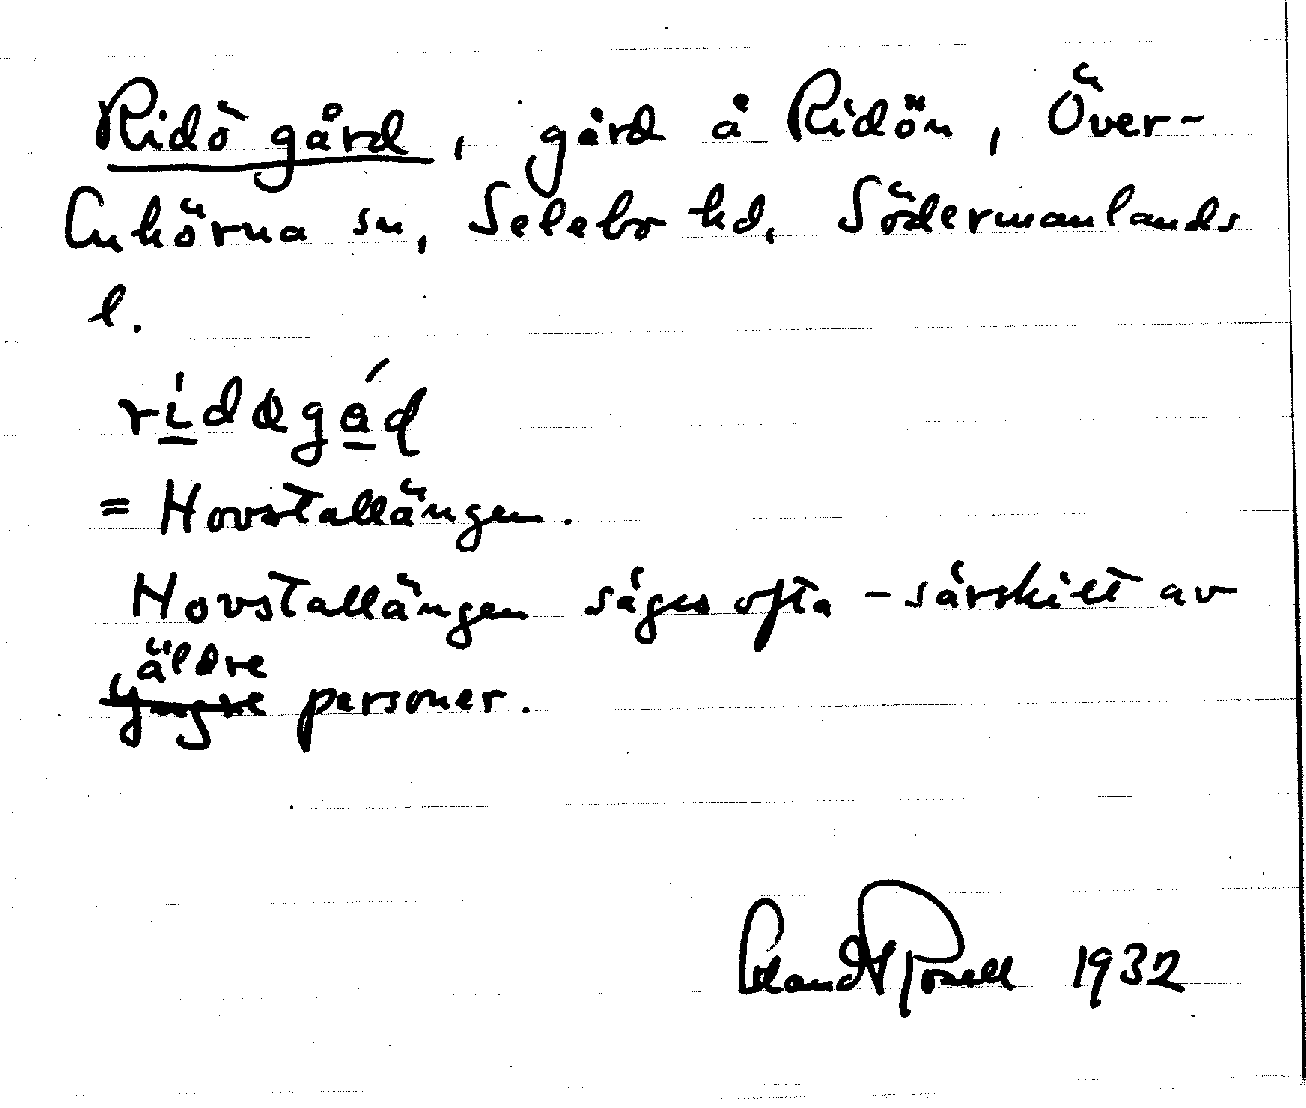 Ridö gård, gård å Ridön, Över-
Enhörna sn, Selebo hd, Södermanlands
l.
= Hovstallängen.
Hovstallängen säges ofta - särskilt av
äldre
yngre personer.
1932